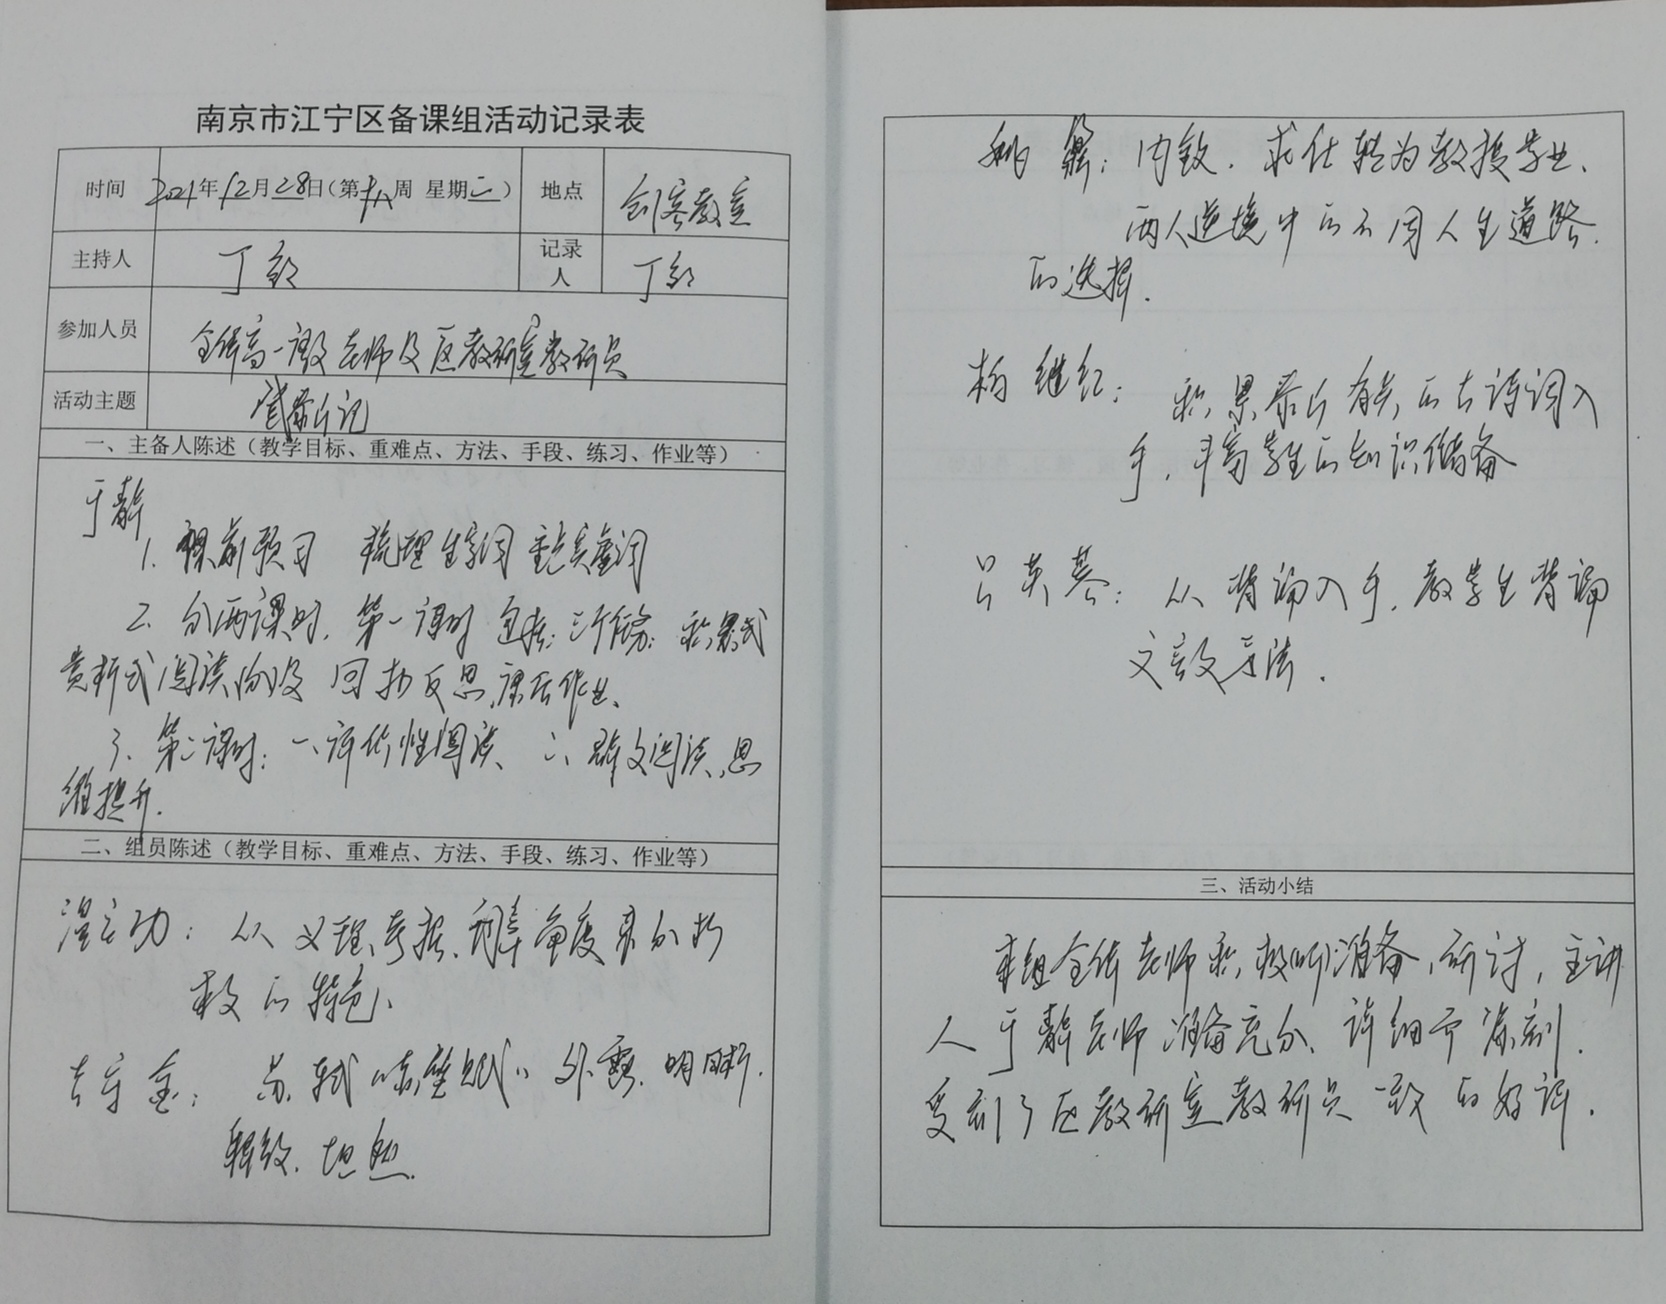 南京市江宁区备课组活动记录表
时间 2021年12月28日（第十八周 星期二） 地点 创客教室
主持人 丁 记录人 丁
参加人员 全体高一语文老师及区教研室教研员
活动主题 登泰山记
一、主备人陈述（教学目标、重难点、方法、手段、练习、作业等）
于静
1. 课前预习 梳理生字词 重点实虚词
2. 分两课时，第一课时 包括：三个任务：积累式
赏析式阅读 以及 回扣反思，课后作业、
3、第二课时：一、评价性阅读、二、群文阅读、思
维提升.
二、组员陈述（教学目标、重难点、方法、手段、练习、作业等）
功：从义理、考据、辞章角度来分析
本文的特色、
金：苏轼《赤壁赋》外露、明晰、
坦然.
姚鼐：内敛、求仕转为教授学业、
两人逆境中的不同人生道路
的选择.
杨继红：积累泰山有关的古诗词入
手，丰富学生的知识储备
吕英琴：从背诵入手，教学生背诵
文言文方法.
三、活动小结
本组全体老师积极听准备，研讨，主讲
人于静老师准备充分、详细而深刻.
受到了区教研室教研员一致的好评.